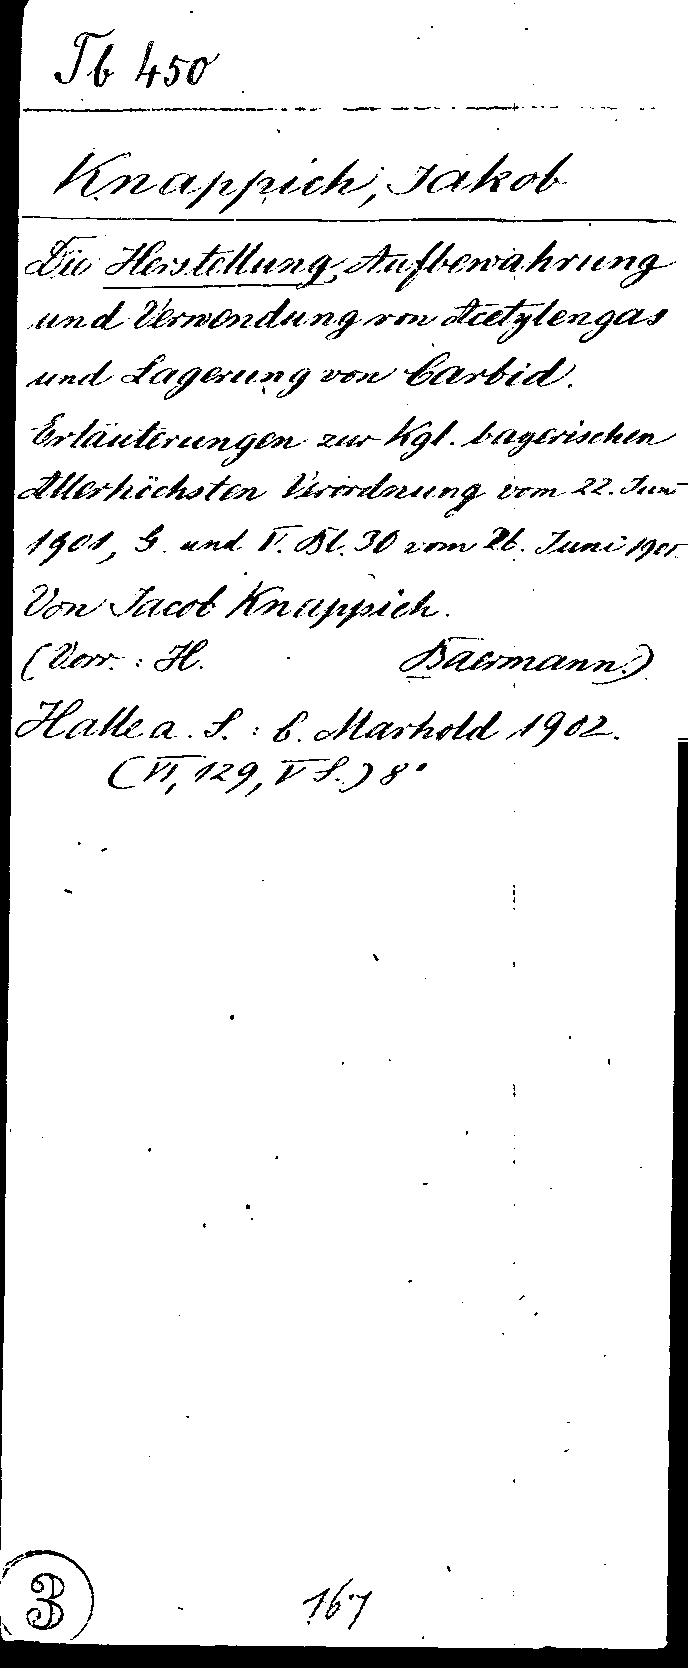 Tb 450
Knappich, Jakob
Die Herstellung, Aufbewahrung
und Verwendung von Acetylengas
und Lagerung von Carbid.
Erläuterungen zur Kgl. bayerischen
Allerhöchsten Verordnung vom 22. Juni
1901, G. und V. Bl. 30 vom 26. Juni 1901.
Von Jacob Knappich.
(Vorr.: H. Baermann.)
Halle a. S.: C. Marhold 1902.
(VI, 129, V S.) 8°
3
167